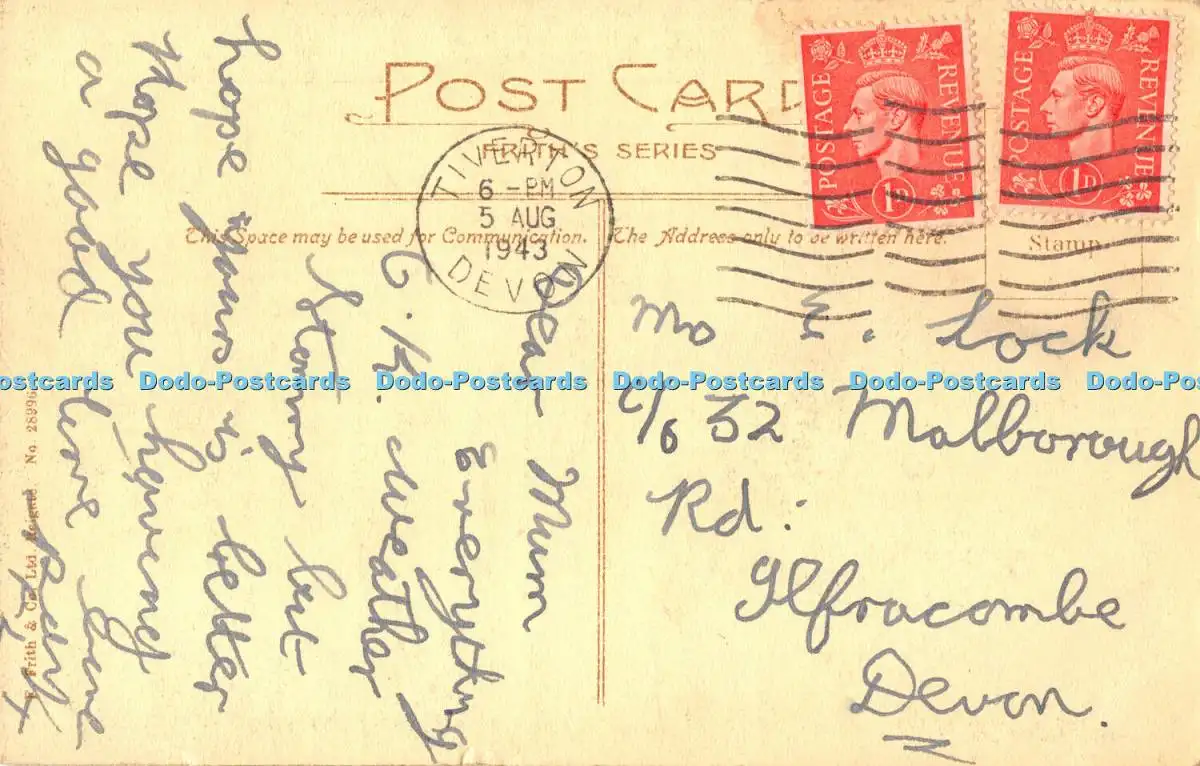 POST CARD
FRITH'S SERIES
This Space may be used for Communication.
The Address only to be written here.
Stamp.
POSTAGE REVENUE
1D
POSTAGE REVENUE
1D
TIVERTON
6 - PM
5 AUG
1943
DEVON
Dear Mum
Everything
O.K. Weather
Stormy but
hope yours is better
Hope you having
a good time
E. Lock
c/o 32 Malborough
Rd:
Ilfracombe
Devon.
F. Frith & Co. Ltd. Reigate No 28996
Dodo-Postcards Dodo-Postcards Dodo-Postcards Dodo-Postcards Dodo-Postcards